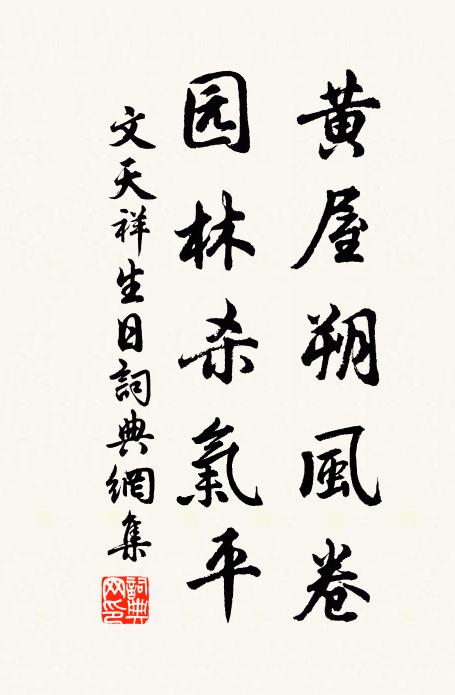 黄屋朔風卷
园林杀氣平
文天祥生日詞典網集
詞典网印